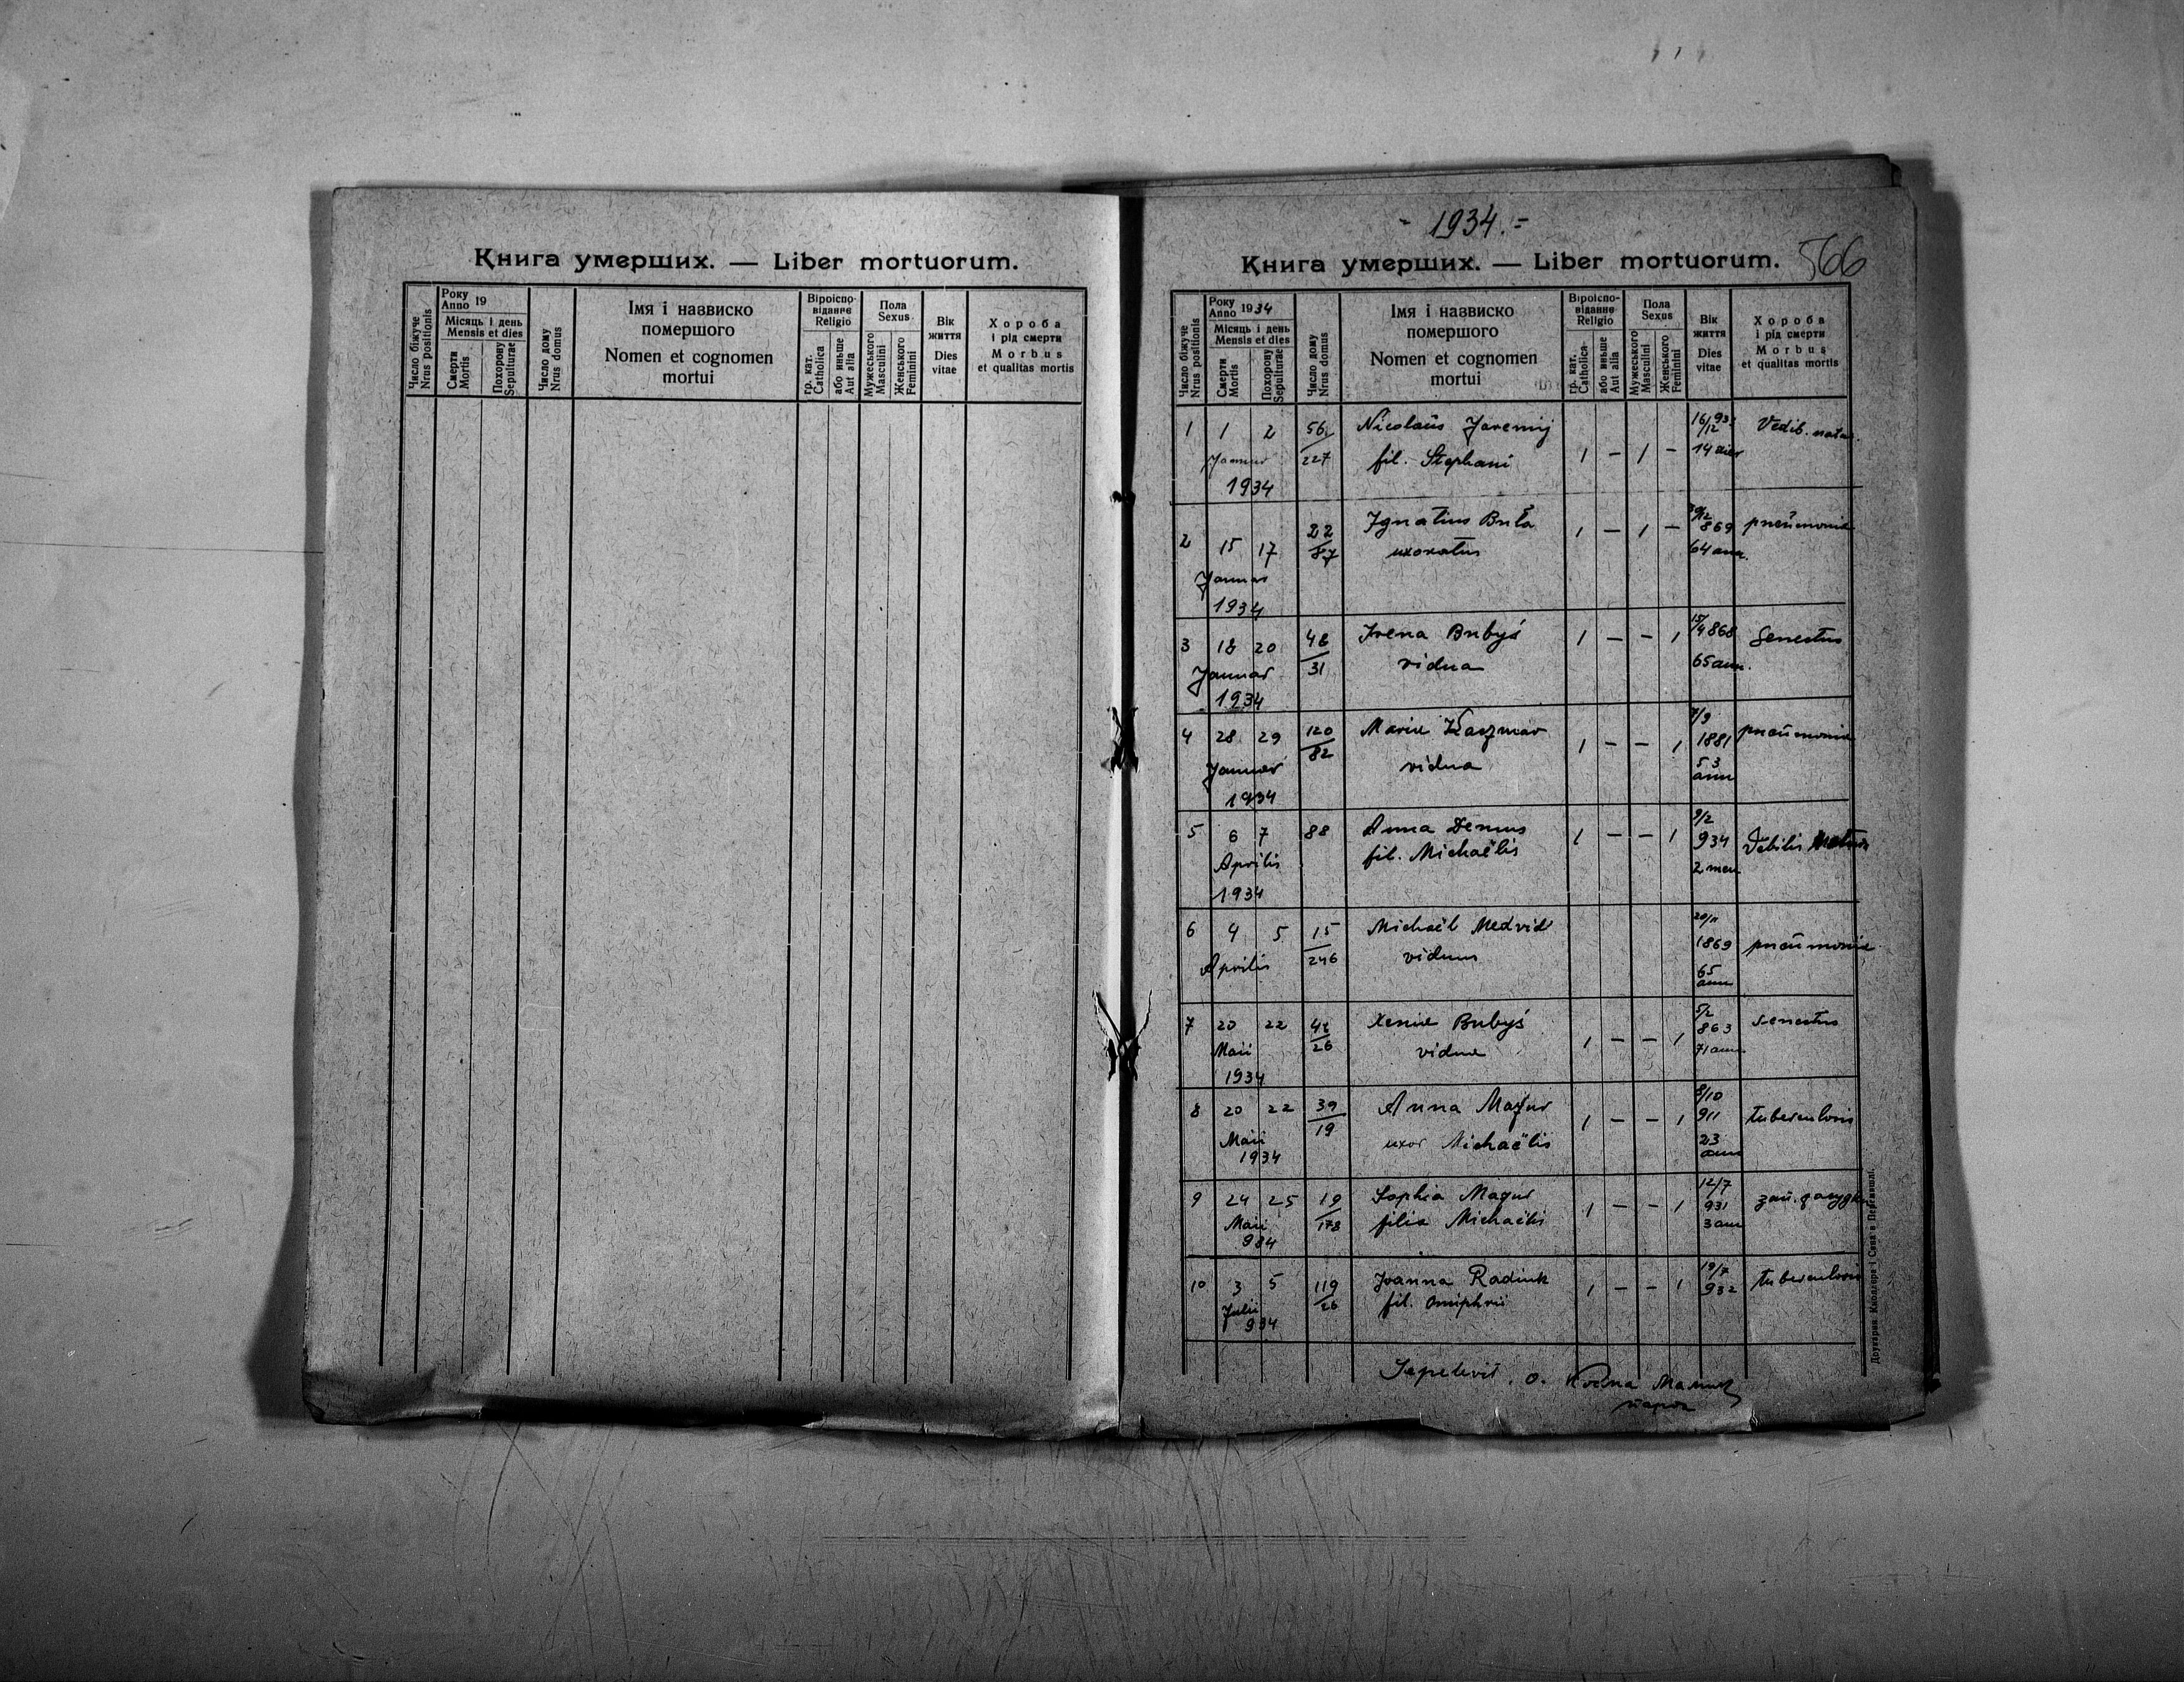 Книга умерших. — Liber mortuorum.
Число біжуче
Nrus positionis
Року
Anno 19
Місяць і день
Mensis et dies
Смерти
Mortis
Похорону
Sepulturae
Число дому
Nrus domus
Імя іназвиско
помершого
Nomen et cognomen
mortui
Віроіспо-
відання
Religio
гр. кат.
Catholica
або иньше
Aut alia
Пола
Sexus
Мужеського
Masculini
Женського
Feminini
Вік
життя
Dies
vitae
Хороба
і рід смерти
Morbus
et qualitas mortis
- 1934. -
Книга умерших. — Liber mortuorum.
566
Число біжуче
Nrus positionis
Року
Anno 1934
Місяць і день
Mensis et dies
Смерти
Mortis
Похорону
Sepulturae
Число дому
Nrus domus
Імя і назвиско
помершого
Nomen et cognomen
mortui
Віроіспо-
відання
Religio
гр. кат.
Catholica
або иньше
Aut alia
Пола
Sexus
Мужеського
Masculini
Женського
Feminini
Вік
життя
Dies
vitae
Хороба
і рід смерти
Morbus
et qualitas mortis
1 1 2 56/227 Nicolaus Jaremij 16/12 93 Debil. natur.
Januar fil. Stephani 1 — 1 — 14 dies
1934
2 15 17 22/87 Ignatius Buła 1 — 1 — 869 pneumonia
uxoratus 64 ann.
Januar
1934
3 18 20 48/31 Irena Bubyś 1 — — 1 15/4 868 Senectus
Januar vidua 65 ann.
1934
4 28 29 120/82 Maria Kaczmar 1 — — 1 7/9 1881 pneumonia
Januar vidua 53 ann
1934
5 6 7 88 Anna Demus 1 — — 1 9/2 934 Debilis natura
Aprilis fil. Michaëlis 2 men.
1934
6 4 5 15/246 Michaël Medvid 20/11 1869 pneumonia
Aprilis viduus 65 ann
7 20 22 42/26 Xenia Bubyś 1 — — 1 5/2 863 Senectus
Maii vidua 71 ann.
1934
8 20 22 39/19 Anna Mazur 1 — — 1 8/10 911 tuberculosis
Maii uxor Michaëlis 23 ann
1934
9 24 25 19/178 Sophia Mazur 1 — — 1 12/7 931
Maii filia Michaëlis 3 ann
934
10 3 5 119/26 Joanna Radiuk 1 — — 1 19/7 932 tuberculosis
Julii fil. Onuphrii
934
о.
парох
Друкарня Кнолєра і Сина в Перемишлі.